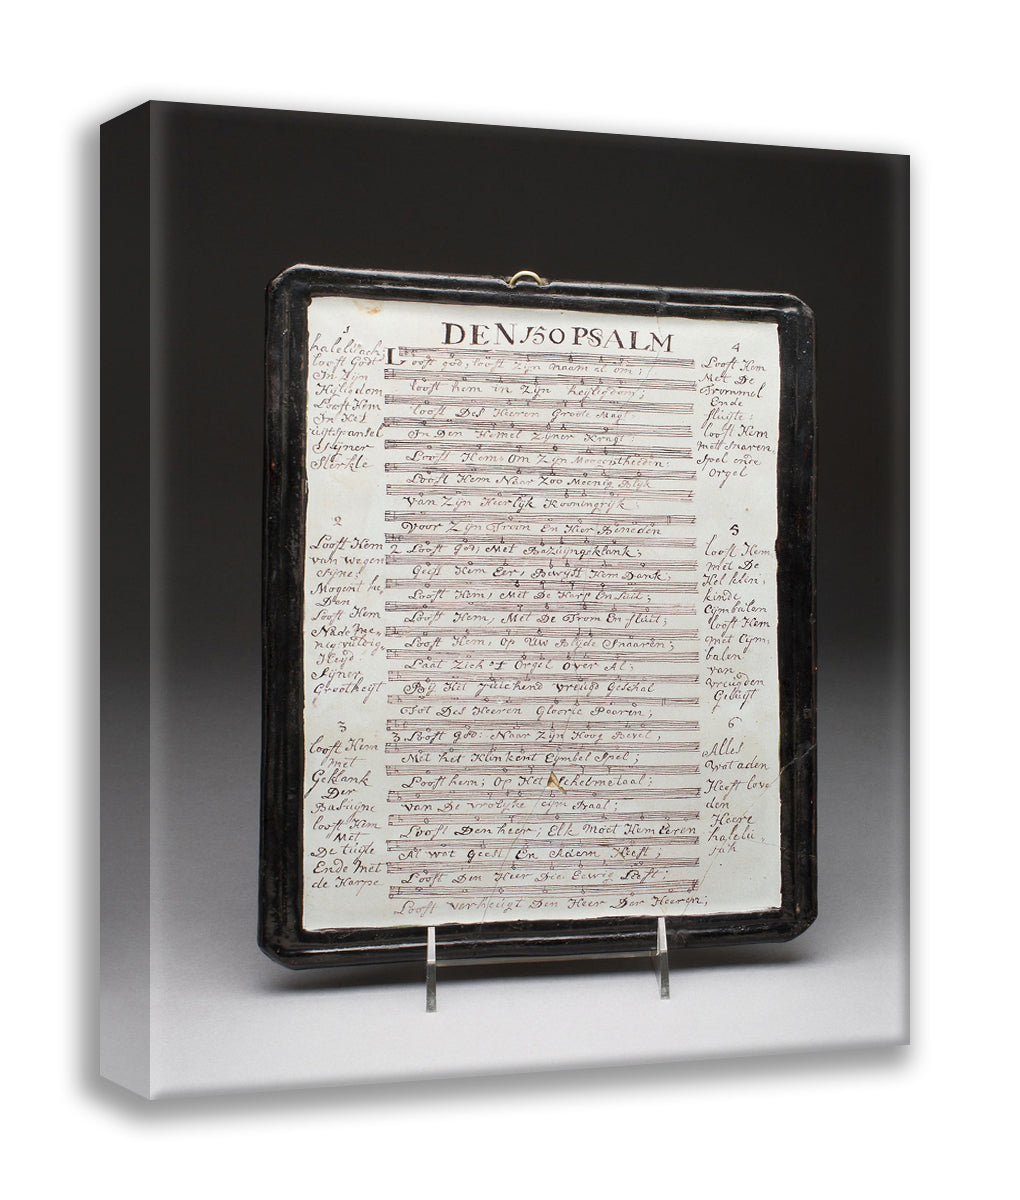 DEN 150 PSALM
1
halelujach;
looft Godt
In Zyn
Hyligdom
Looft Hem
In Het
uijtspansel
Sijner
Sterkle
2
Looft Hem
van wegen
Syne
Mogent he,
Den
Looft Hem
Nade Me,
nigvuldig,
Heyd:
Syner
Grootheyt
3
looft Hem
Met
Geklank
Der
Basuyne
looft Hem
Met
De
Ende Met
de Harpe
Looft god, looft Zijn naam al om;
looft hem in Zijn heyligdom;
looft Des Heeren Groote Magt:
In Den Hemel Zijner Kragt:
Looft Hem, Om Zyn Moogentheeden:
Looft Hem Naar Zoo Meenig Blyk
van Zijn Heerlyk Kooningryk:
Voor Zyn Troon En Hier Beneden
2 Looft God, Met Bazuyngeklank;
Geeft Hem Eer, Bewyst Hem Dank;
Looft Hem, Met De Harp En Luit;
Looft Hem, Met De Trom En fluit;
Looft Hem, Op Uw Blyde Snaaren;
Laat Zich 't Orgel Over Al;
By Het Juichend vreugd Geschal
Tot Des Heeren Gloorie Paaren;
3. Looft God: Naar Zijn Hoog Bevel,
Met het Klinkent Cymbel Spel;
Looft hem; Op Het Schelmetaal;
van De vrolyke Cym Baal;
Looft Den heer; Elk Moet Hem Eeren
Al wat Geest En Adem Heeft;
Looft Den Heer Die Eewig Leeft;
Looft verheugt Den Heer Der Heeren;
4
Looft Hem
Met De
Trommel
Ende
fluijte:
looft Hem
met Snaren,
Spel ende
Orgel
5
looft Hem
Met De
Hel klin,
kinde
Cymbalen
looft Hem
met Cym,
balen
van
vreugden
Geluijt
6
Alles
Wat aden
Heeft love
den
Heere
halelu,
jah